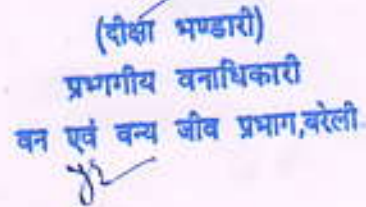 (दीक्षा भण्डारी)
प्रभागीय वनाधिकारी
वन एवं वन्य जीव प्रभाग,बरेली